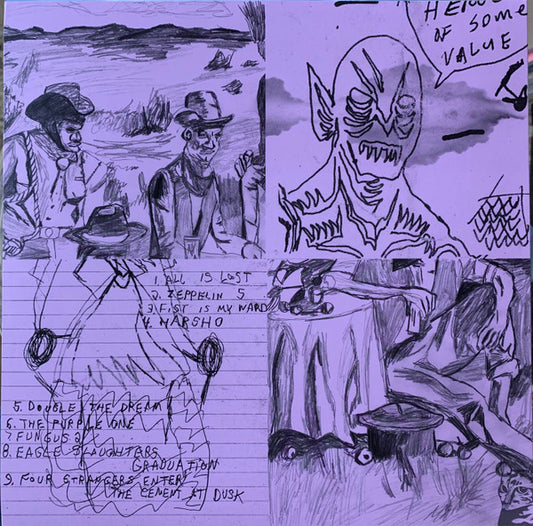 OF SOME
VALUE
1. ALL IS LOST
2. ZEPPELIN 5
3. FIST IS MY WARD
4. HARSHO
5. DOUBLE THE DREAM
6. THE PURPLE ONE
7 FUNGUS 2
8. EAGLE SLAUGHTERS
GRADUATION
9. FOUR STRANGERS ENTER
THE CEMENT AT DUSK